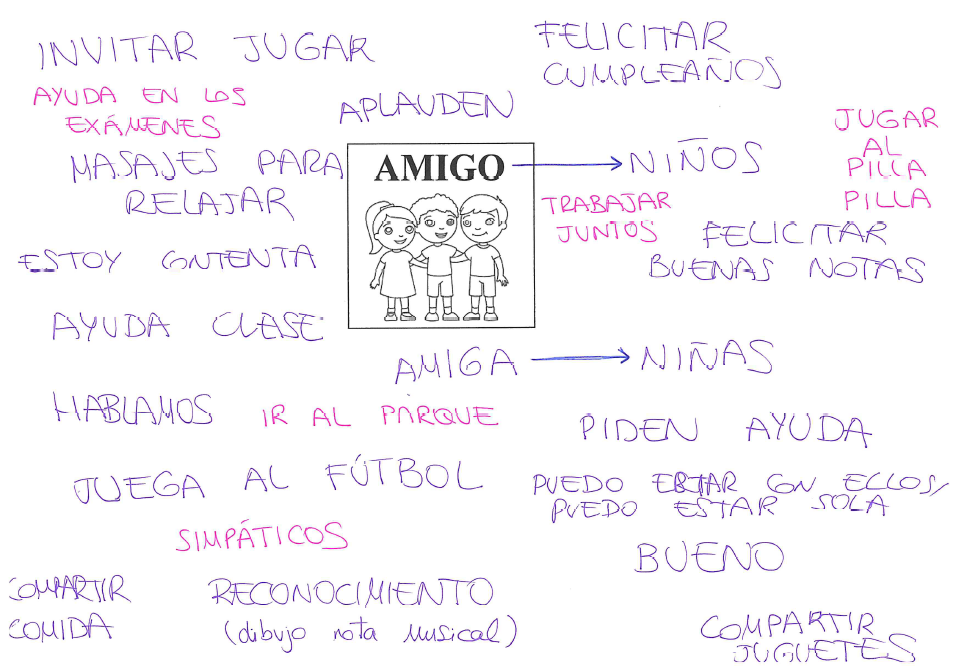 INVITAR JUGAR
FELICITAR
CUMPLEAÑOS
AYUDA EN LOS
EXÁMENES
APLAUDEN
JUGAR
AL
PILLA
PILLA
MASAJES PARA
RELAJAR
AMIGO
NIÑOS
TRABAJAR
JUNTOS
FELICITAR
BUENAS NOTAS
ESTOY CONTENTA
AYUDA CLASE
AMIGA
NIÑAS
HABLAMOS
IR AL PARQUE
PIDEN AYUDA
JUEGA AL FÚTBOL
PUEDO ESTAR CON ELLOS/
PUEDO ESTAR SOLA
SIMPÁTICOS
BUENO
COMPARTIR
COMIDA
RECONOCIMIENTO
(dibujo nota musical)
COMPARTIR
JUGUETES